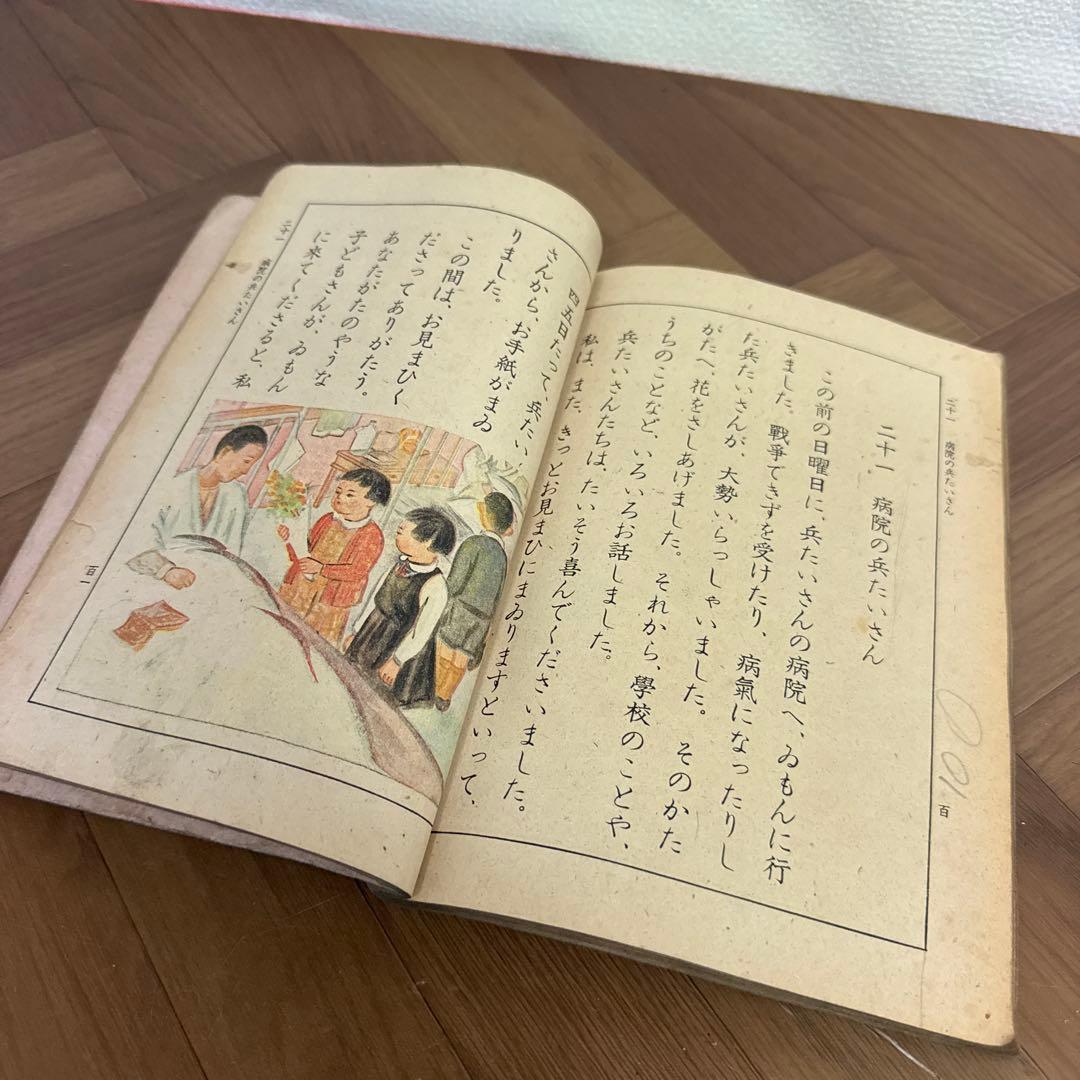 二十一 病院の兵たいさん
百
二十一 病院の兵たいさん
この前の日曜日に、兵たいさんの病院へ、ゐもんに行
きました。戰爭できずを受けたり、病氣になったりし
た兵たいさんが、大勢いらっしゃいました。そのかた
がたへ、花をさしあげました。それから、學校のことや、
うちのことなど、いろいろお話しました。
兵たいさんたちは、たいそう喜んでくださいました。
私は、また、きっとお見まひにまゐりますといって、
四五日たって、兵たい
さんから、お手紙がまゐ
りました。
この間は、お見まひく
ださってありがたう。
あなたがたのやうな
子どもさんが、ゐもん
に來てくださると、私
二十一 病院の兵たいさん
百一